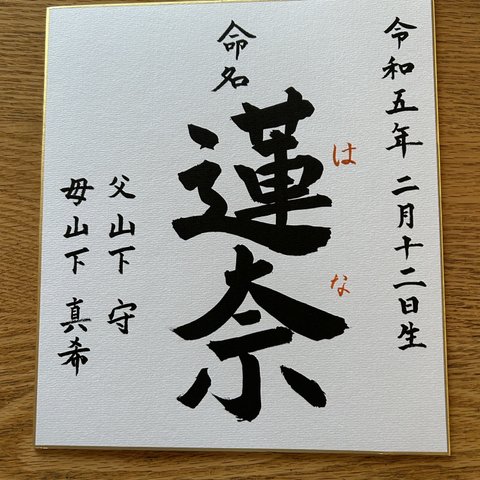 令和五年 二月十二日生
命名
蓮奈
はな
父 山下 守
母 山下 真希